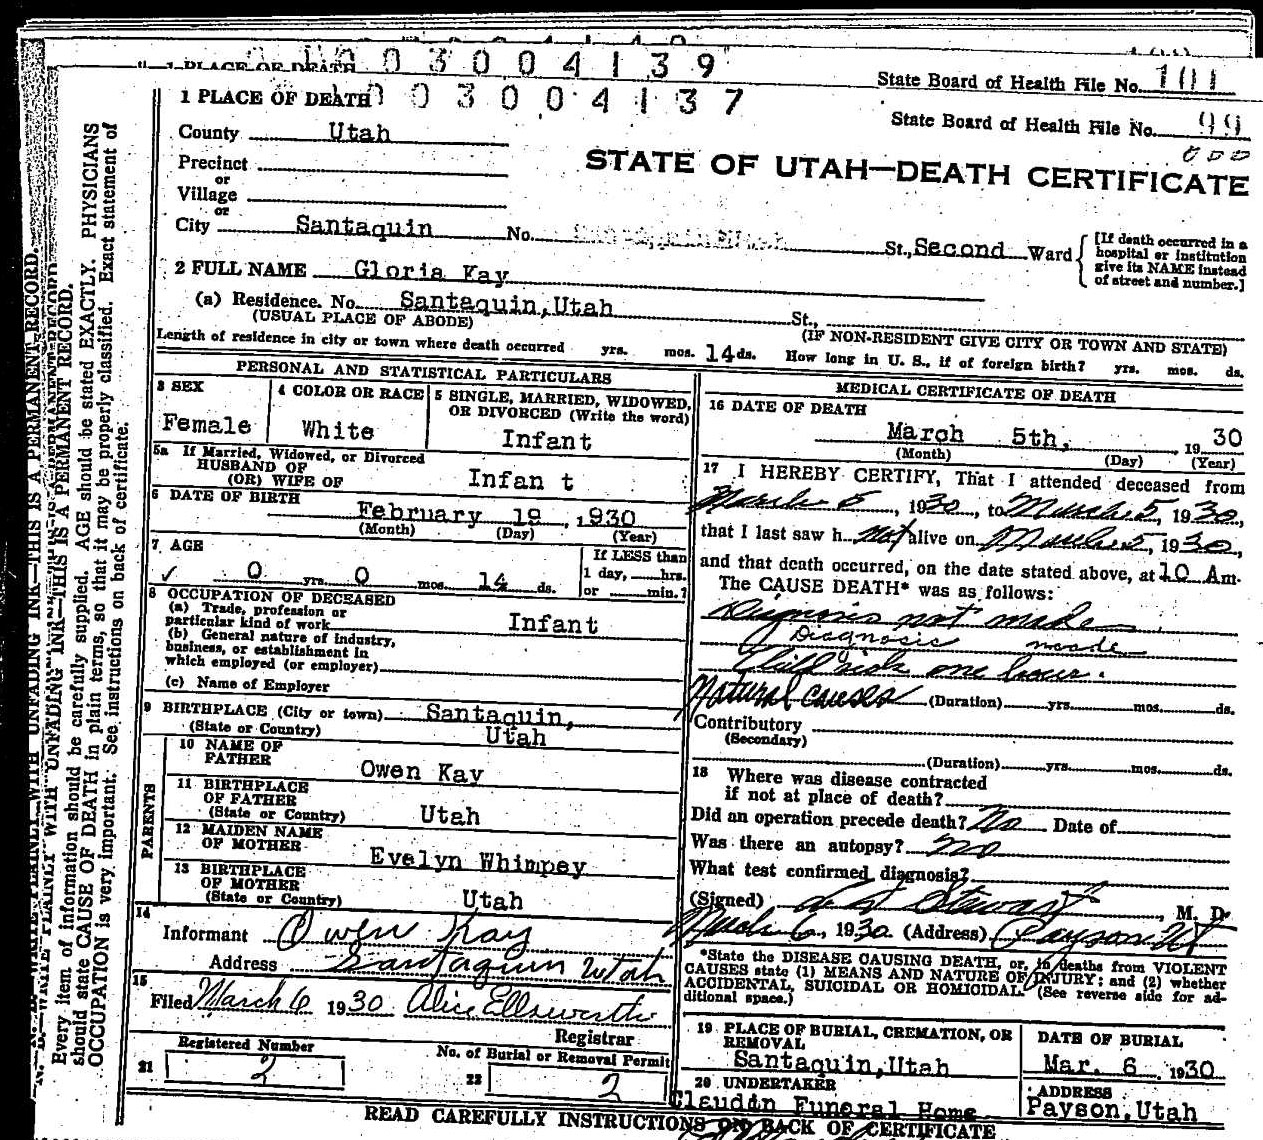 1 PLACE OF DEATH
03004139
State Board of Health File No. 101
1 PLACE OF DEATH
03004137
State Board of Health File No. 99
County Utah
STATE OF UTAH—DEATH CERTIFICATE
Precinct
or
Village
or
City Santaquin No. St., Second Ward
[If death occurred in a
hospital or institution
give its NAME instead
of street and number.]
2 FULL NAME Gloria Kay
(a) Residence. No. Santaquin, Utah St.,
(USUAL PLACE OF ABODE) (IF NON-RESIDENT GIVE CITY OR TOWN AND STATE)
Length of residence in city or town where death occurred yrs. mos. 14 ds. How long in U. S., if of foreign birth? yrs. mos. ds.
PERSONAL AND STATISTICAL PARTICULARS
3 SEX
Female
4 COLOR OR RACE
White
5 SINGLE, MARRIED, WIDOWED,
OR DIVORCED (Write the word)
Infant
5a If Married, Widowed, or Divorced
HUSBAND OF
(OR) WIFE OF Infan t
6 DATE OF BIRTH
February 19, 1930
(Month) (Day) (Year)
7 AGE
✓ 0 yrs. 0 mos. 14 ds.
If LESS than
1 day, hrs.
or min.?
8 OCCUPATION OF DECEASED
(a) Trade, profession or
particular kind of work Infant
(b) General nature of industry,
business, or establishment in
which employed (or employer)
(c) Name of Employer
9 BIRTHPLACE (City or town) Santaquin,
(State or Country) Utah
PARENTS
10 NAME OF
FATHER Owen Kay
11 BIRTHPLACE
OF FATHER
(State or Country) Utah
12 MAIDEN NAME
OF MOTHER Evelyn Whimpey
13 BIRTHPLACE
OF MOTHER
(State or Country) Utah
14
Informant Owen Kay
Address Santaquin Utah
15
Filed March 6 1930 Alice Ellsworth
Registrar
21 Registered Number
2
No. of Burial or Removal Permit
22 2
MEDICAL CERTIFICATE OF DEATH
16 DATE OF DEATH
March 5th, 1930
(Month) (Day) (Year)
17 I HEREBY CERTIFY, That I attended deceased from
March 5, 1930, to March 5, 1930,
that I last saw h not alive on March 5, 1930,
and that death occurred, on the date stated above, at 10 Am.
The CAUSE DEATH* was as follows:
Diagnosis not made
Diagnosis made
Child sick one hour.
Natural causes (Duration) yrs. mos. ds.
Contributory
(Secondary)
(Duration) yrs. mos. ds.
18 Where was disease contracted
if not at place of death?
Did an operation precede death? No Date of
Was there an autopsy? no
What test confirmed diagnosis?
(Signed) Stewart, M. D.
March 6, 1930 (Address) Payson Ut
*State the DISEASE CAUSING DEATH, or, in deaths from VIOLENT
CAUSES state (1) MEANS AND NATURE OF INJURY; and (2) whether
ACCIDENTAL, SUICIDAL OR HOMICIDAL. (See reverse side for ad-
ditional space.)
19 PLACE OF BURIAL, CREMATION, OR
REMOVAL
Santaquin, Utah
DATE OF BURIAL
Mar. 6 1930
20 UNDERTAKER
Claudin Funeral Home
ADDRESS
Payson, Utah
READ CAREFULLY INSTRUCTIONS ON BACK OF CERTIFICATE
WRITE PLAINLY WITH UNFADING INK—THIS IS A PERMANENT RECORD.
Every item of information should be carefully supplied. AGE should be stated EXACTLY. PHYSICIANS
should state CAUSE OF DEATH in plain terms, so that it may be properly classified. Exact statement of
OCCUPATION is very important. See instructions on back of certificate.